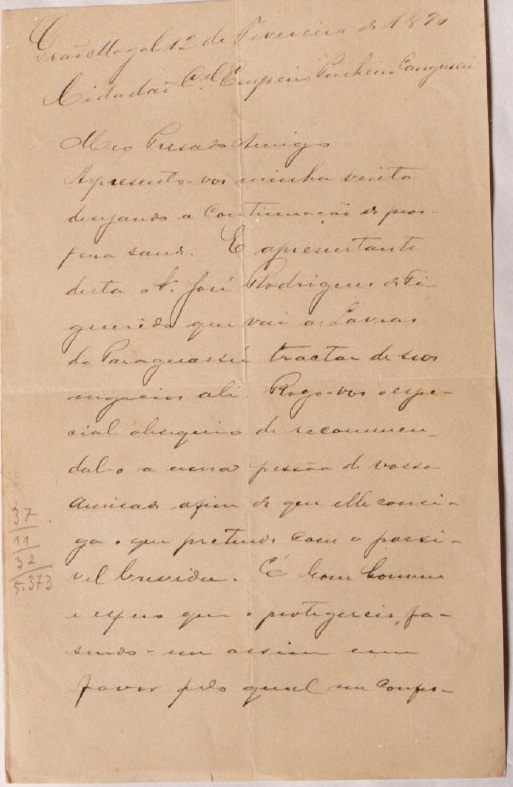 Grão Mogol 12 de Fevereiro de 189
Cidadão Cel. Pinheiro Cangussú
Meu Presado Amigo
Apresento-vos minha visita
desejando a continuação de pros-
pera saude. É apresentante
desta o Sr. José Rodrigues de Fi-
gueredo que vai as Lavras
do Paraguassú tractar de seus
negocios ali. Rogo-vos o espe-
cial obsequio de recommen-
dal-o a uma pessôa de vossa
amisade afim de que elle consi-
ga o que pretende com a possi-
vel brevidade. É bom homem
e espero que o protegereis, fa-
sendo-me assim um
favor pelo qual me confes-
37
11
32
5.373